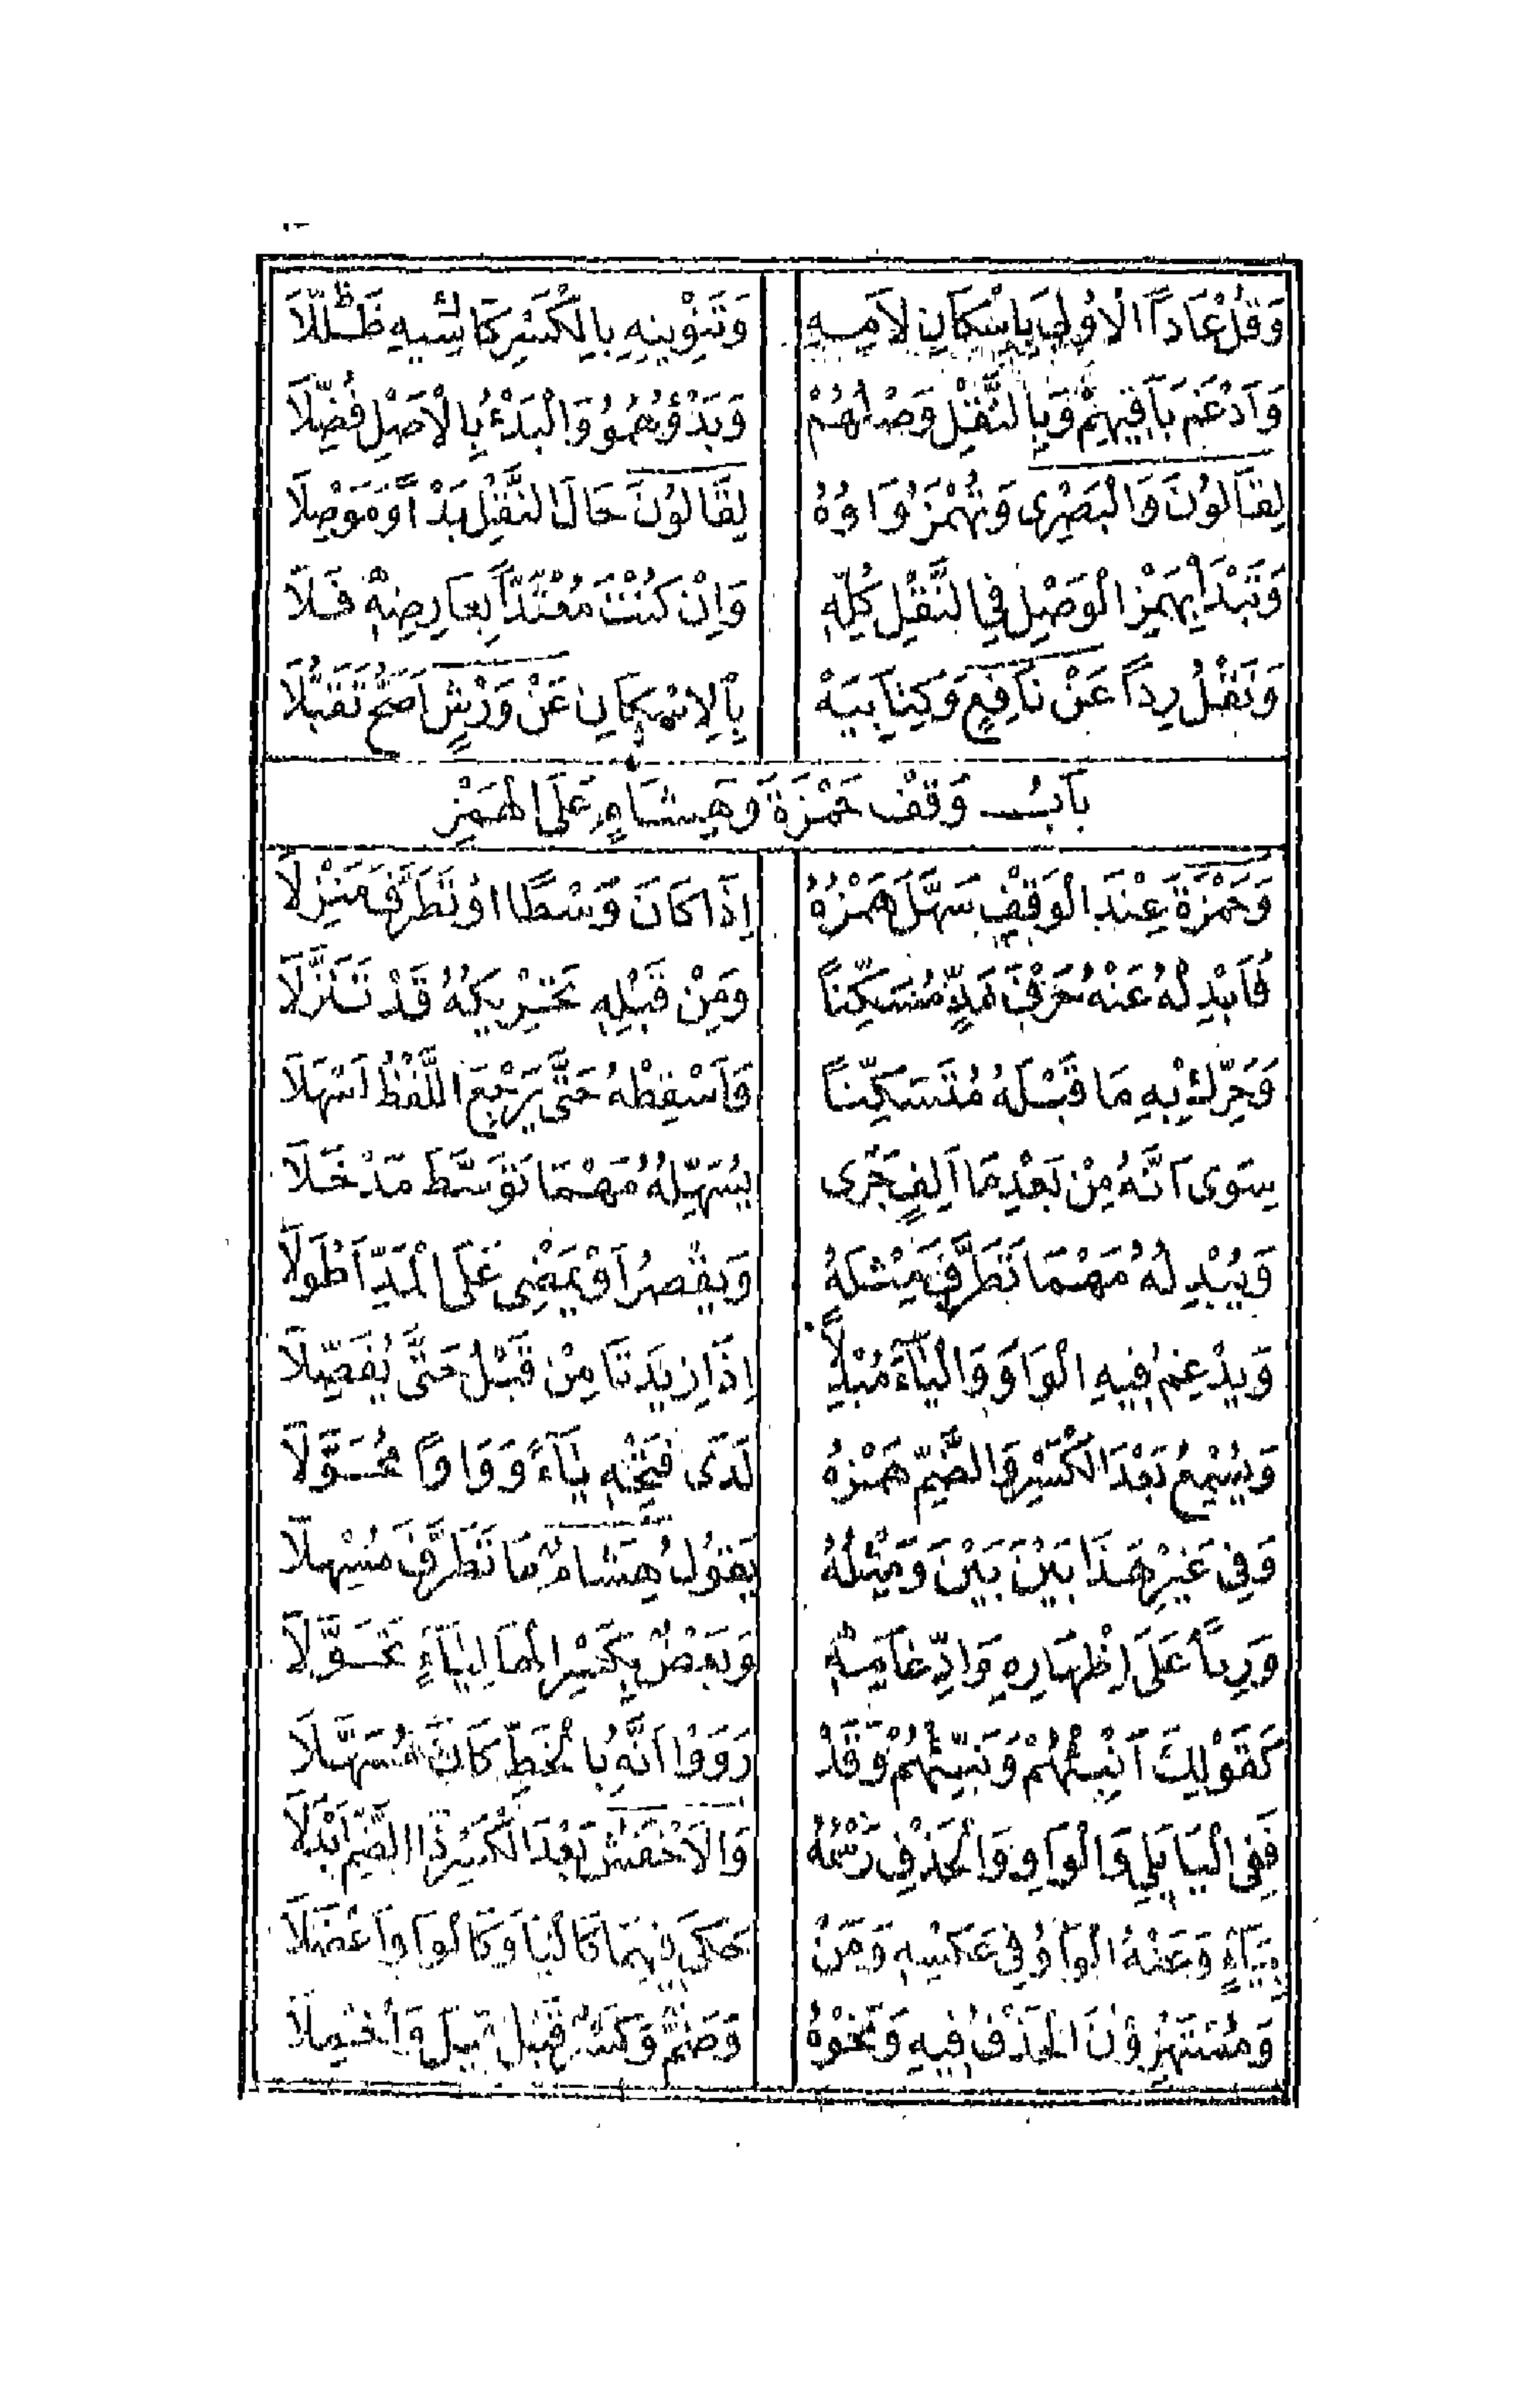 وَقُلْ عَادًا الْاُولَى بِاِسْكَانِ لَامِهِ وَتَنْوِينِهِ بِالْكَسْرِ كَاسِيهِ ظَلَّلَا
وَاَدْغَمَ بَاقِيهِمْ وَبِالنَّقْلِ وَصْلُهُمْ وَبَدْؤُهُمُو وَالْبَدْءُ بِالْاَصْلِ فُضِّلَا
لِقَالُونَ وَالْبَصْرِى وَتُهْمَزُ وَاوُهُ لِقَالُونَ حَالَ النَّقْلِ بَدْأً وَمَوْصِلَا
وَتَبْدَأْ بِهَمْزِ الْوَصْلِ فِي النَّقْلِ كُلِّهِ وَاِنْ كُنْتَ مُعْتَدًّا بِعَارِضِهِ فَلَا
وَنَقْلُ رِدًا عَنْ نَافِعٍ وَكِتَابِيَهْ بِالْاِسْكَانِ عَنْ وَرْشٍ اَصَحُّ تَقَبُّلَا
بَابُ وَقْفِ حَمْزَةَ وَهِشَامٍ عَلَى الْهَمْزِ
وَحَمْزَةُ عِنْدَ الْوَقْفِ سَهَّلَ هَمْزَهُ اِذَا كَانَ وَسْطًا اَوْ تَطَرَّفَ مَنْزِلَا
فَاَبْدِلْهُ عَنْهُ حَرْفَ مَدٍّ مُسَكِّنًا وَمِنْ قَبْلِهِ تَحْرِيكُهُ قَدْ تَنَزَّلَا
وَحَرِّكْ بِهِ مَا قَبْلَهُ مُتَسَكِّنًا وَاَسْقِطْهُ حَتَّى يَرْجِعَ اللَّفْظُ اَسْهَلَا
سِوَى اَنَّهُ مِنْ بَعْدِ مَا اَلِفٍ جَرَى يُسَهِّلُهُ مَهْمَا تَوَسَّطَ مَدْخَلَا
وَيُبْدِلُهُ مَهْمَا تَطَرَّفَ مِثْلَهُ وَيَقْصُرُ اَوْ يَمْضِى عَلَى الْمَدِّ اَطْوَلَا
وَيُدْغِمُ فِيهِ الْوَاوَ وَالْيَآءَ مُبْدِلًا اِذَا زِيدَتَا مِنْ قَبْلُ حَتَّى يُفَصِّلَا
وَيُسْمِعُ بَعْدَ الْكَسْرِ وَالضَّمِّ هَمْزَهُ لَدَى فَتْحِهِ يَآءً وَوَاوًا مُحَوَّلَا
وَفِى غَيْرِ هَذَا بَيْنَ بَيْنَ وَمِثْلُهُ يَقُولُ هِشَامٌ مَا تَطَرَّفَ مُسْهِلَا
وَرِءْيًا عَلَى اِظْهَارِهِ وَادِّغَامِهِ وَبَعْضٌ بِكَسْرِ الْهَا لِيَآءٍ تَحَوَّلَا
كَقَوْلِكَ اَنْبِئْهُمْ وَنَبِّئْهُمْ وَقَدْ رَوَوْا اَنَّهُ بِالْخَطِّ كَانَ مُسَهَّلَا
فَفِى الْيَا يَلِي وَالْوَاوِ وَالْحَذْفِ رَسْمَهُ وَالْاَخْفَشُ بَعْدَ الْكَسْرِ ذَا الضَّمِّ اَبْدَلَا
بِيَآءٍ وَعَنْهُ الْوَاوُ فِى عَكْسِهِ وَمَنْ حَكَى فِيهِمَا كَالْيَا وَكَالْوَاوِ اَعْضَلَا
وَمُسْتَهْزِءُوْنَ الْحَذْفُ فِيهِ وَنَحْوُهُ وَضَمٌّ وَكَسْرٌ قَبْلُ قِيلَ وَاُخْمِلَا